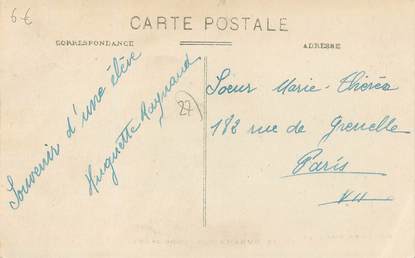 6€
CARTE POSTALE
CORRESPONDANCE
ADRESSE
Souvenir d'une élève
Huguette Raynaud
27)
Soeur Marie-Thérèse
182 rue de Grenelle
Paris
VII